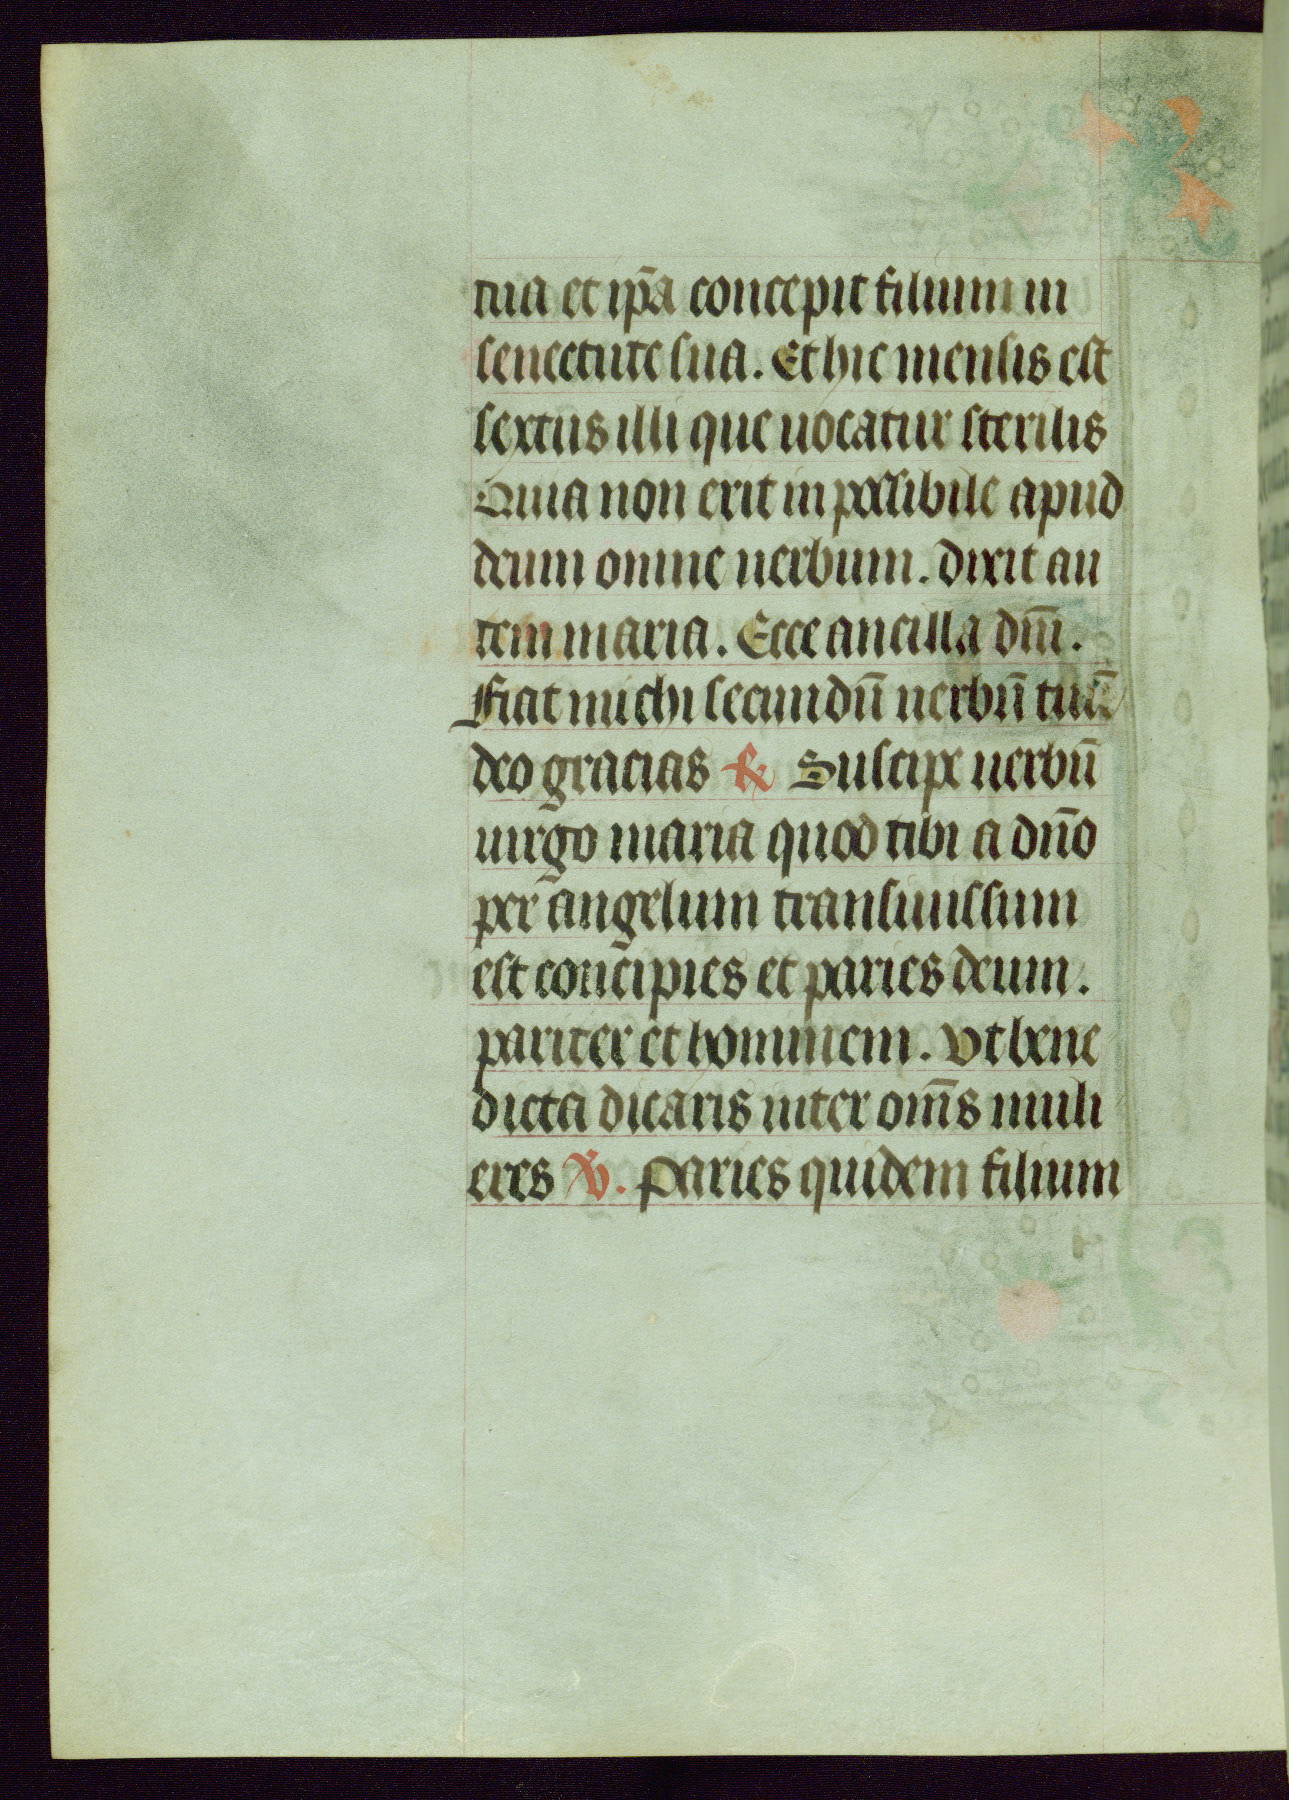 tua et ip̄a concepit filium in
senectute sua. Et hic mensis est
sextus illi que uocatur sterilis
Quia non erit inpossibile apud
deum omne uerbum. dixit au
tem maria. Ecce ancilla dn̄i.
Fiat michi secundū uerbū tuū
deo gracias ℟ Suscipe uerbū
uirgo maria quod tibi a dn̄o
per angelum transmissum
est concipies et paries deum.
pariter et hominem. Vt bene
dicta dicaris inter om̄s muli
eres ℣. Paries quidem filium